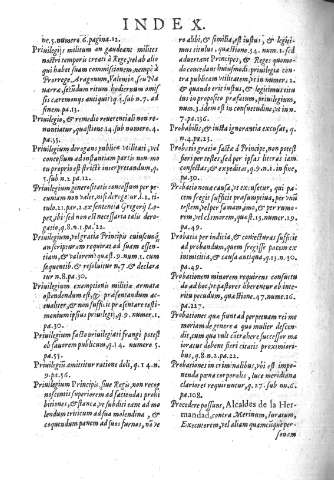 INDEX.
nr.5. numero 6. pagina.12.
Privilegijs militum an gaudeant milites
nostri temporis creati à Rege, vel ab alio
qui habet suam commissionem, nempè à
Prorege, Aragonum, Valentiæ, seu Na
uarræ, seiudum ritum hodiernum omis
sis caremonijs antiqui q.3. sub n.7. ad
finem pa.13.
Privilegio, & remedio reuerentiali non re
nuntiatur, quæstione 14. sub numero.4.
pa.55.
Privilegium derogans publicæ vtilitati, vel
concessum ad instantiam partis non mo
tu proprio est strictè interpretandum q.
7. sub n.2. pa.12.
Privilegium generositatis concessum per pe
cuniam non valet,
titulo.21. par.2. ex sententia Gregorij Lo
pez, ibi sed non est necessaria talis dero
gatio q.8. n.1. pa.22.
Privilegium, vel gratia Principis cuiuscumq́;
an scripturam requirat ad suam essen
tiam, & valorem? quæst.9. num.1. cum
sequentib. & resoluitur n.7. & declara
tur n.8. pa.30.
Privilegium exemptionis militæ armata
ostendendum est, & præsentandum ac
tualiter, & non sufficit præsentare testi-
monium ipsius privilegij, q.9. numer.1.
pa.30.
Privilegium facto priuilegiati frangi potest
ob fauorem publicum, q.14. numero 5.
pa.55.
Privilegium amittitur ratione doli, q.14. n.
9. pa.56.
Privilegium Principis siue Regis, non recog
noscentis superiorem ad faciendas prohi
bitiones, & stanta, vt subditi eant ad mo
lendum triticum ad sua molendina, &
coquendum panem ad suos furnos, nõ ve
ro alibi, & est iustus, & legiti-
mus titulus, quæstione.34. num.1. sed
aduertant Principes, & Reges quomo-
do concedant huiusmodi privilegia con-
tra publicam vtilitatem, vt in numer.2.
& quando erit iustus, & legitimus titu
lus in proposito præfatum, privilegium,
& idem est in consuetudine, vt in nu.
7. pa.136.
Probabilis, & iusta ignorantia excusat, q.
n.4. pa.23.
Probatio gratiæ factæ à Principe, non potest
fieri per testes, sed per ipsas literas iam
confectas, & expeditas, q.9. n.1. in fine,
pa.30.
Probatio noua causæ, vt excusetur, qui pa-
cem fregit sufficit præsumptiua, per vnũ
testem, vel per famam, ono, & per rumo-
rem, vel clamorem, quæst.13. numer.19.
pa.49.
Probatio per indicia, & coniecturas sufficit
ad probandum, quem fregisse pacem ex
intimatis quæstione.13. numero.20.
pa.49.
Probationem minorem requirens consuetu
do ad hoc, vt pastores abeneruur ab inte-
ritu pecudum, quæst.10. n.47. nume.26.
pa.127.
Probationes quæ fiunt ad perpetuam rei me
moriam de genere a quo mulier descen-
dit, cum qua vult contrahere successor ma
ioratus debent fieri citatis proximiori-
bus, q.8. n.2. pa.22.
Probationes in criminalibus, vbi est impo-
nenda pœna corporalis, luce meridiana
clariores requiruntur, q.27. sub nu.6.
pa.108.
Procedere possunt, Alcaldes de la Her
mandad, contra Merinum, Iuratum,
Executorem, vel aliam quamcũque per-
sonam